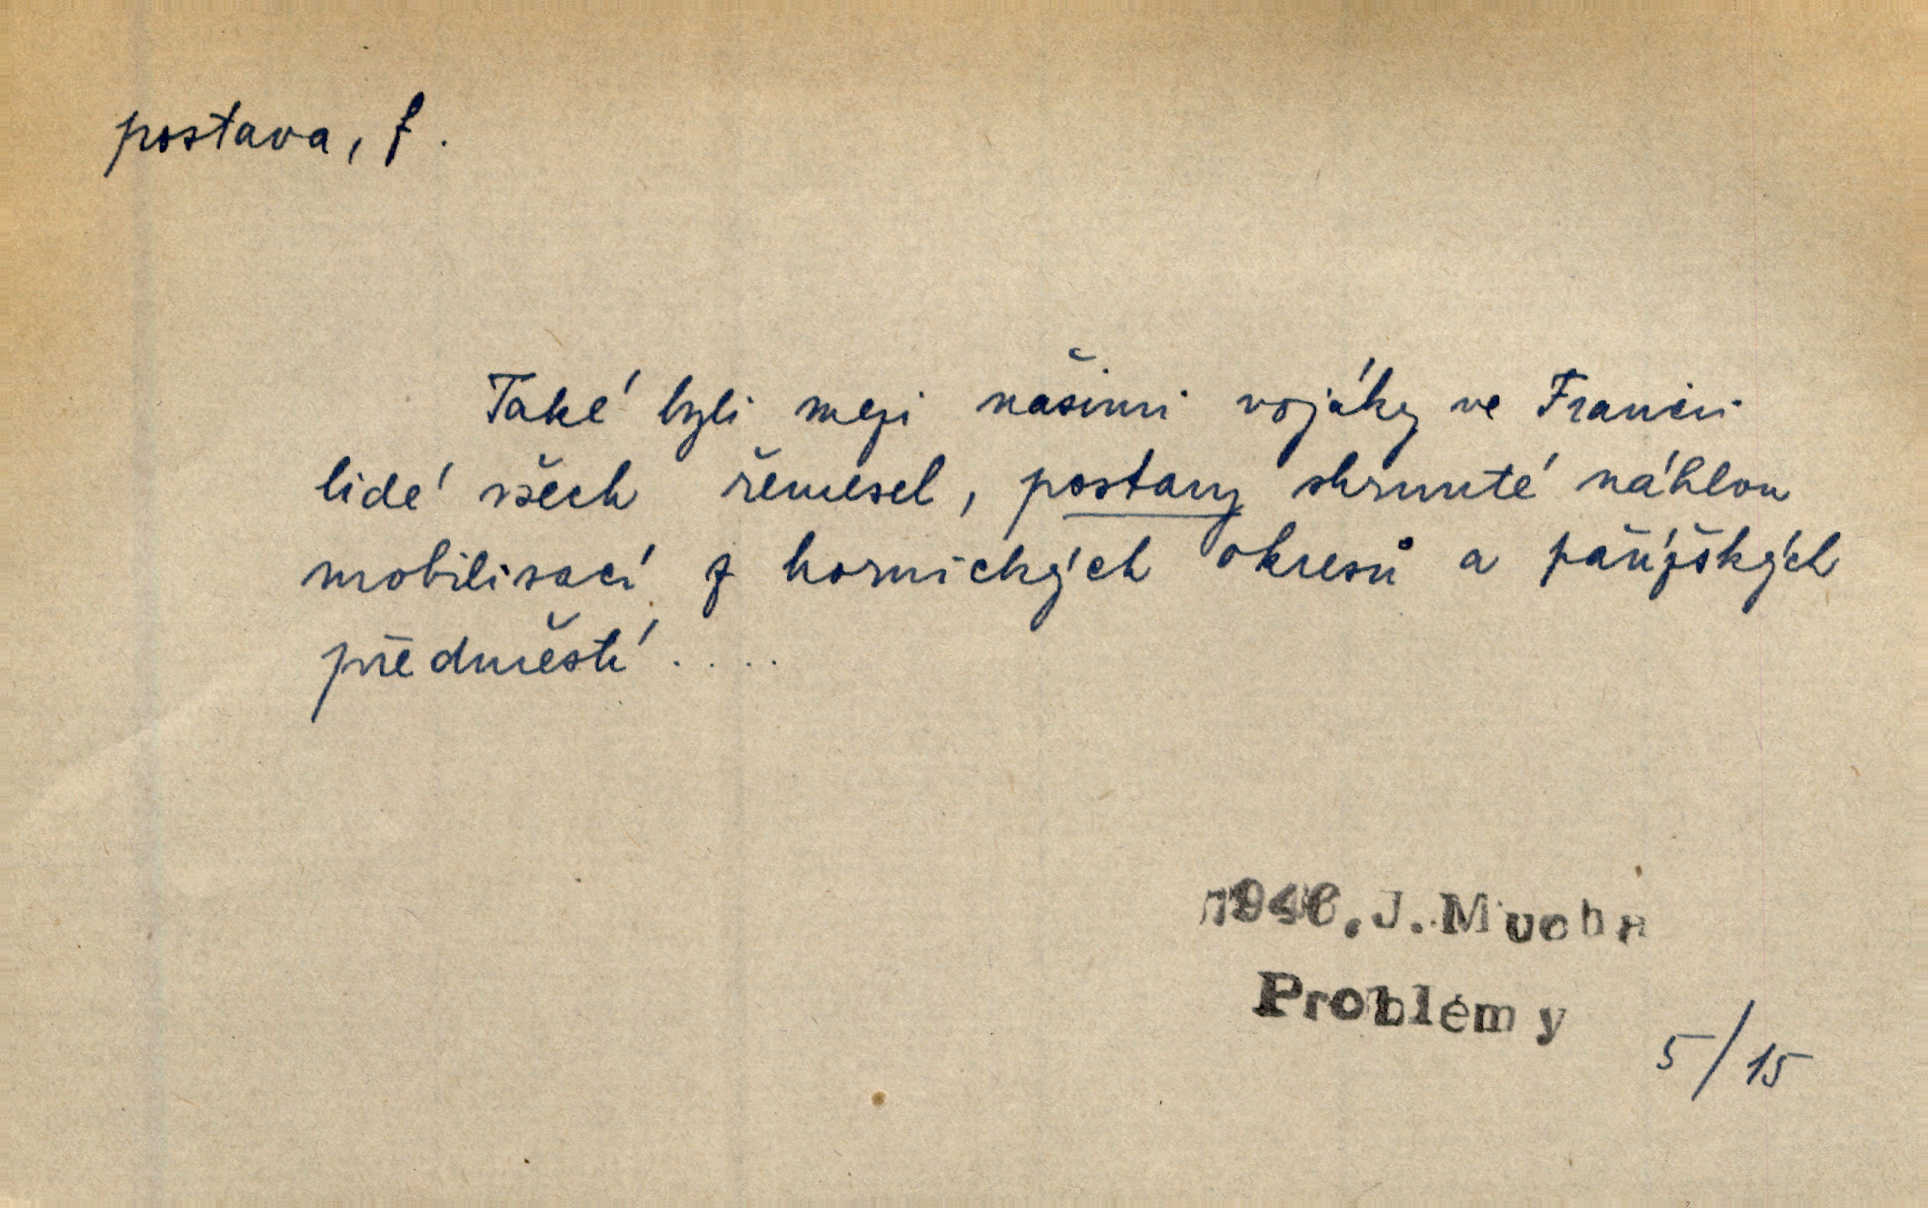 postava, f.
Také byli mezi našimi vojáky ve Francii
lidé všech řemesel, postavy shrnuté náhlou
mobilisací z hornických okresů a pařížských
předměstí . . . .
1946. J. Mucha
Problémy
5/15